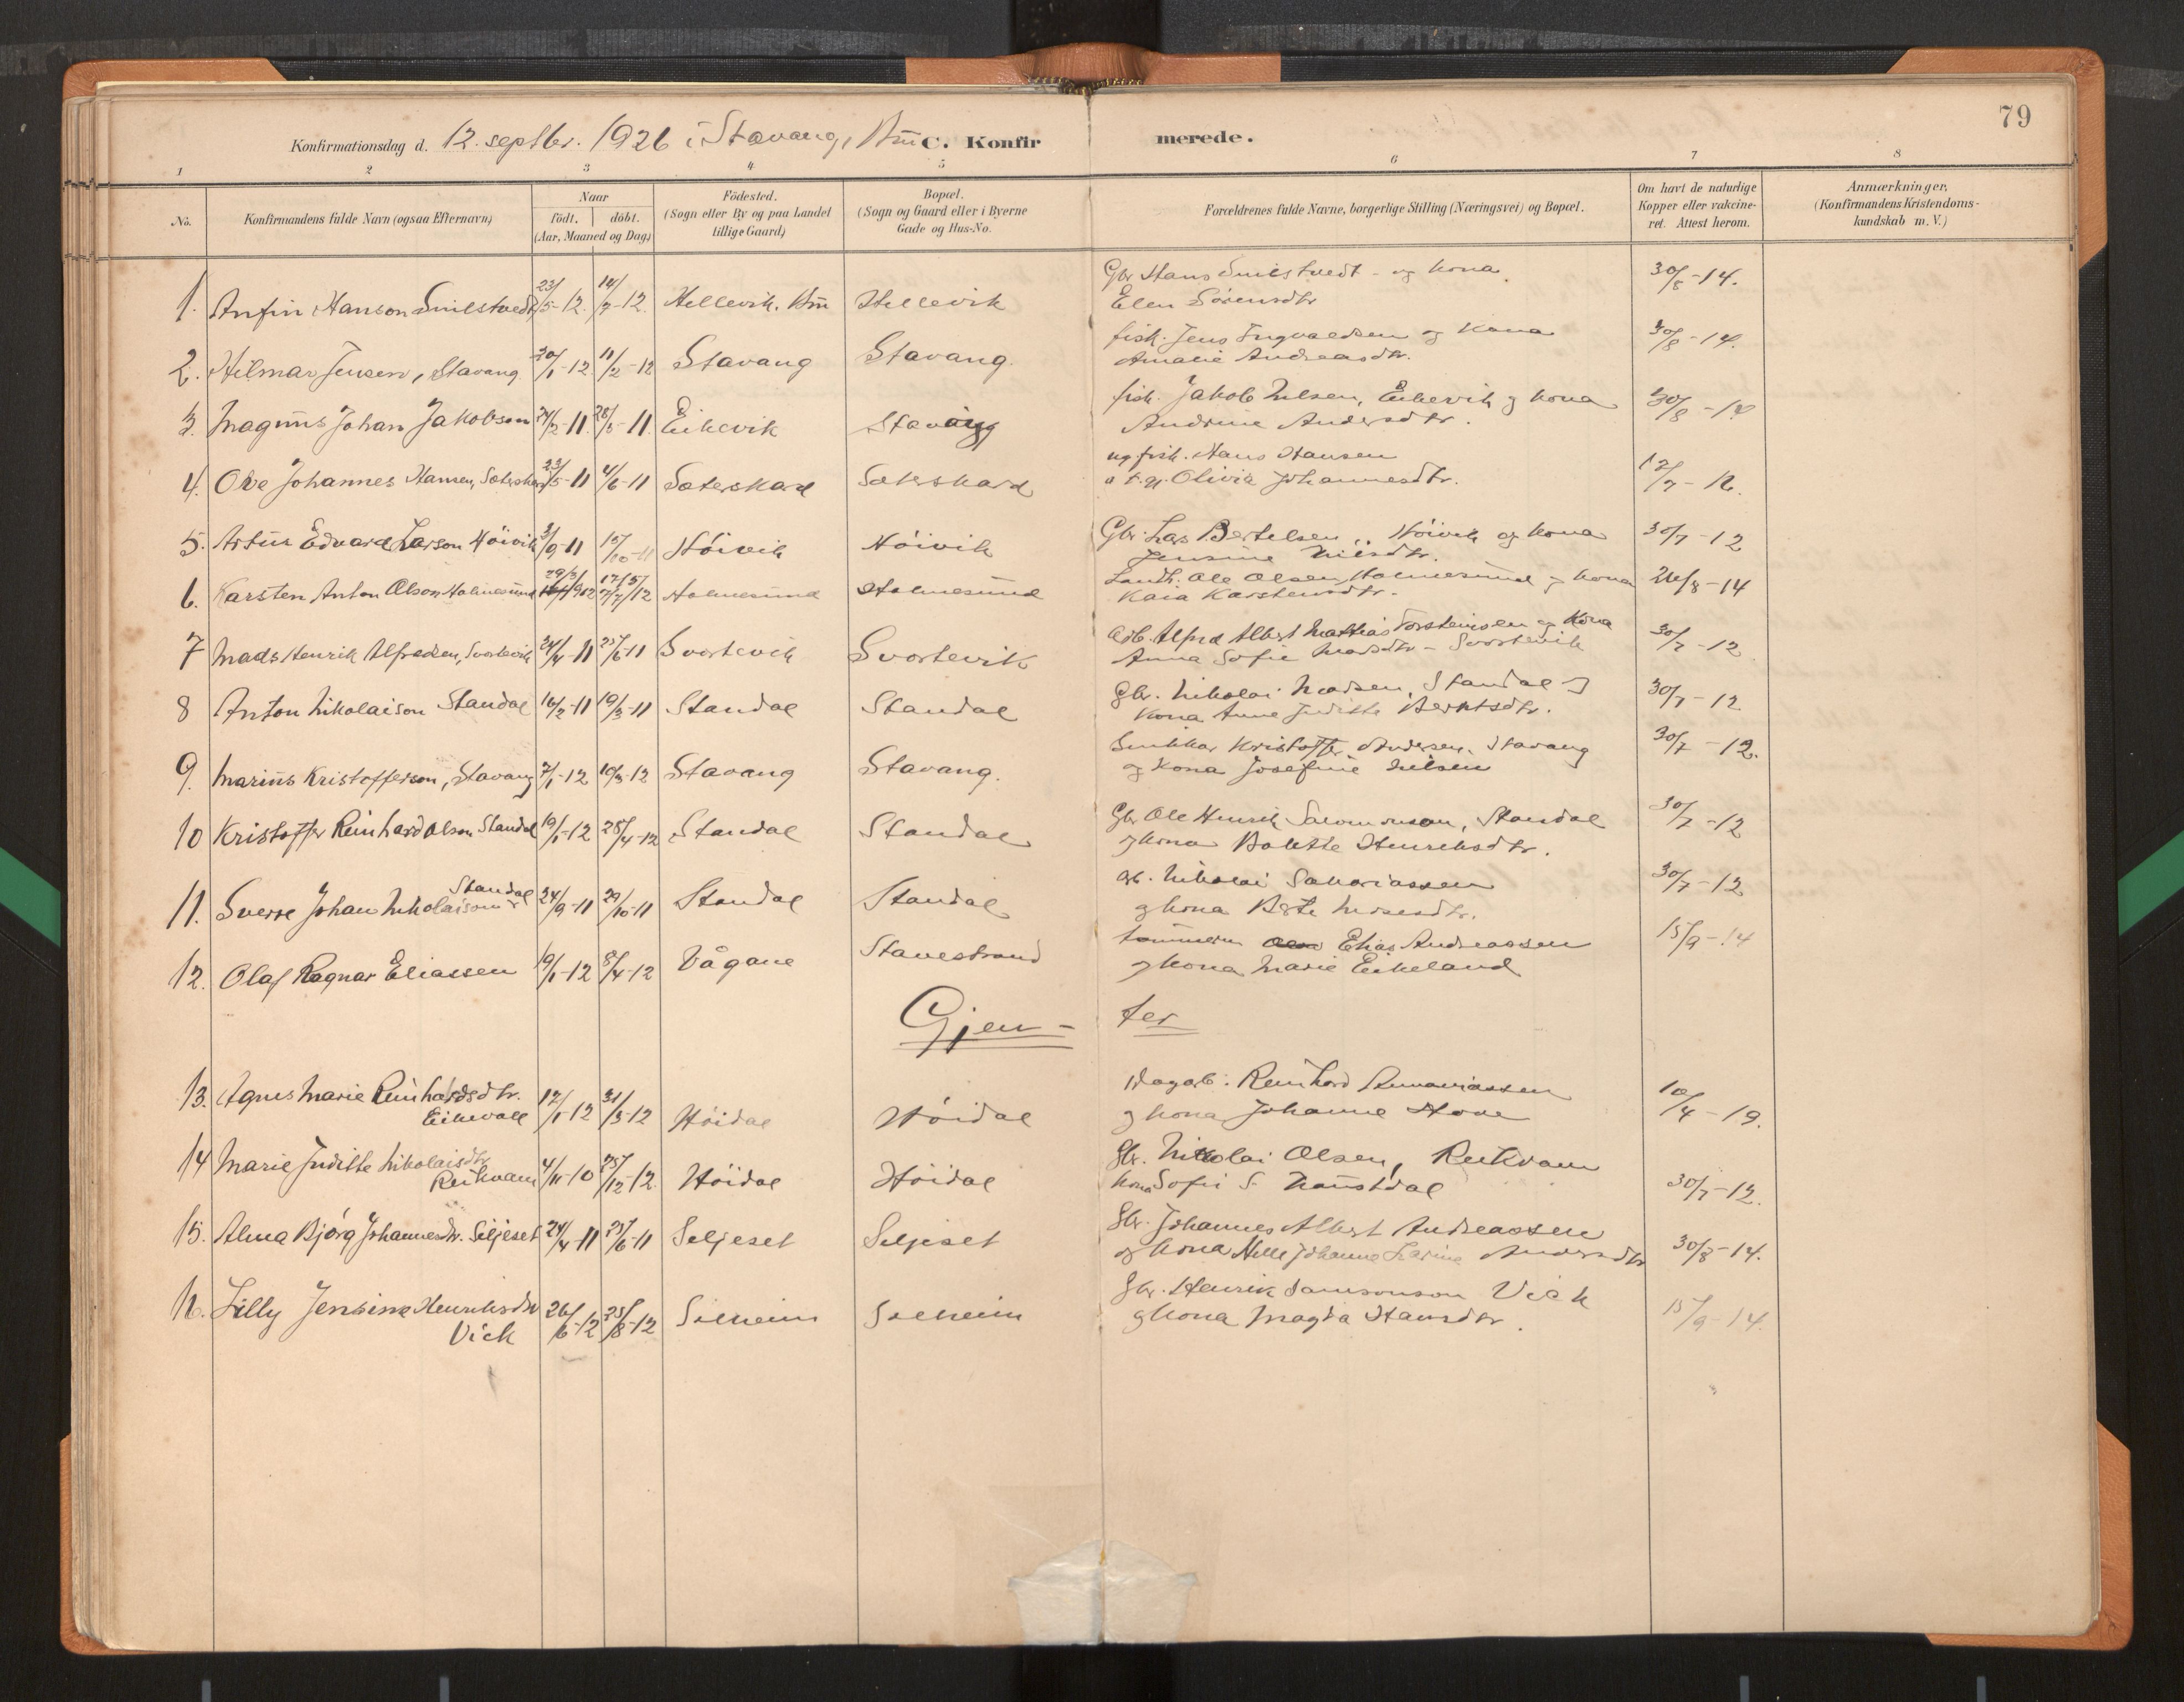 79
Konfirmationsdag d. 12. septbr. 1926 i Stavang, C. Konfirmerede.
1 2 3 4 5 6 7 8
No. Konfirmandens fulde Navn (ogsaa Efternavn) Naar födt. döbt. (Aar, Maaned og Dag) Födested. (Sogn eller By og paa Landet tillige Gaard) Bopæl. (Sogn og Gaard eller i Byerne Gade og Hus-No. Forældrenes fulde Navne, borgerlige Stilling (Næringsvei) og Bopæl. Om havt de naturlige Kopper eller vakcineret. Attest herom. Anmærkninger, (Konfirmandens Kristendomskundskab m. V.)
1. Anfin Hanson Smilstvedt 23/5-12. 14/7-12. Hellevik. Hellevik Gbr Hans Smilstvedt - og kona 30/8-14.
Elen Sörensdtr
2. Hilmar Jensen, Stavang 30/1-12 11/2-12 Stavang Stavang. fisk. Jens Ingvaldsen og Kona 30/8-14.
Amalie Andreasdtr.
3. Magnüs Johan Jakobson 24/2-11. 28/5-11. Eikevik Stavang fisk. Jakob Nelsen, Eikevik og kona 30/8-14
Andrine Andersdtr.
4. Ove Johannes Hansen, Sæterskard 23/5-11 4/6-11 Sæterskard Sæterskard ug. fisk. Hans Hansen 12/7-12.
Olivia Johannesdtr.
5. Artür Edvard Larson Höivik 3/9-11 15/10-11 Höivik Höivik Gbr. Lars Bertelsen, Höivik og kona 30/7-12
Jensine Nilsdtr.
6. Karsten Anton Olson Holmesünd 29/3/1912 17/5/12 Holmesünd Holmesünd Landh. Ole Olsen, Holmesund og kona 26/8-14
Kaia Karstensdtr.
7 Mads Henrik Alfredsen, Svortevik 24/4-11 25/6-11 Svortevik Svortevik Alfred Albert Mathias Torsteinsen og Kona 30/7-12
Anna Sofie Madsdtr - Svortevik
8 Anton Nikolaison Standal 16/2-11 19/3-11 Standal Standal Gbr. Nikolai Madsen, Standal 30/7-12
Kona Anne Juditte Berntsdtr.
9. Marinüs Kristofferson, Stavang 7/1-12 10/3-12 Stavang Stavang. Snikkar Kristoffer Andersen, Stavang 30/7-12.
og Kona Josefine Nelsen
10 Kristoffer Reinhard Olson Standal 19/1-12 28/4-12 Standal Standal Gbr. Ole Henrik Salomonson, Standal 30/7-12
og kona Bolette Henriksdtr.
11. Sverre Johan Nikolaison Standal 24/9-11 29/10-11 Standal Standal Gb. Nikolai Sakariassen 30/7-12
og kona Berte Mosesdtr.
12. Olaf Ragnar Eliassen 19/1-12 8/4-12 Vågane Stavestrand tömmerm Elias Andreassen 15/9-14
og kona Marie Eikeland
Gjen-ter
13. Agnes Marie Reinhardsdtr. Eikevall 17/1-12 31/3-12 Höidal Höidal Dagarb. Reinhard Annaniassen 10/4-19.
og kona Johanne Hove
14 Marie Juditte Nikolaisdtr Reikvam 4/11-10 25/12-12. Höidal Höidal Gbr. Nikolai Olsen, Reikvam 30/7-12.
kona Sofie S. Naustdal
15. Alma Bjórg Johannesdtr. Seljeset 24/4-11 25/6-11 Seljeset Seljeset Gbr. Johannes Albert Andreassen 30/8-14.
og kona Helle Johanne Larine Andersdtr
16. Lilly Jensine Henriksdtr Vick 26/6-12 25/8-12 Solheim Solheim Gbr. Henrik Samsonson Vick 15/9-14.
og kona Magda Hansdtr.